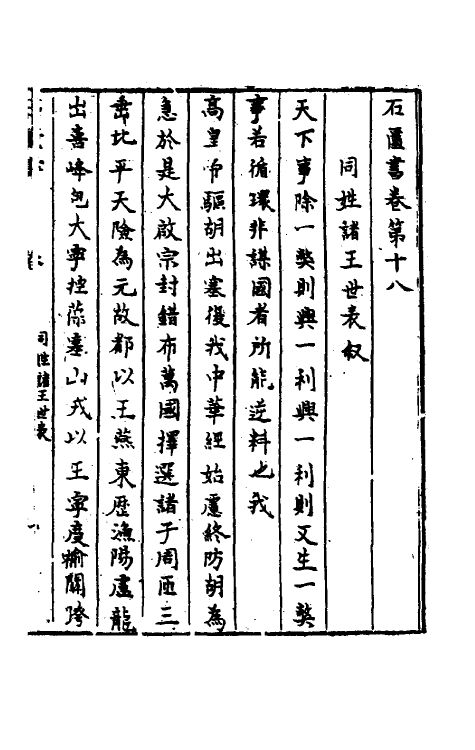 石匱書卷第十八
同姓諸王世表叙
天下事除一獘則興一利興一利則又生一獘
事若循環非謀國者所能逆料也我
高皇帝驅胡出塞復我中華經始慮終防胡為
急於是大啟宗封錯布萬國擇選諸子周匝三
垂北平天險為元故都以王燕東歷漁陽盧龍
出喜峰包大寧控葆塞山戎以王寧度榆關跨
同姓諸王世表